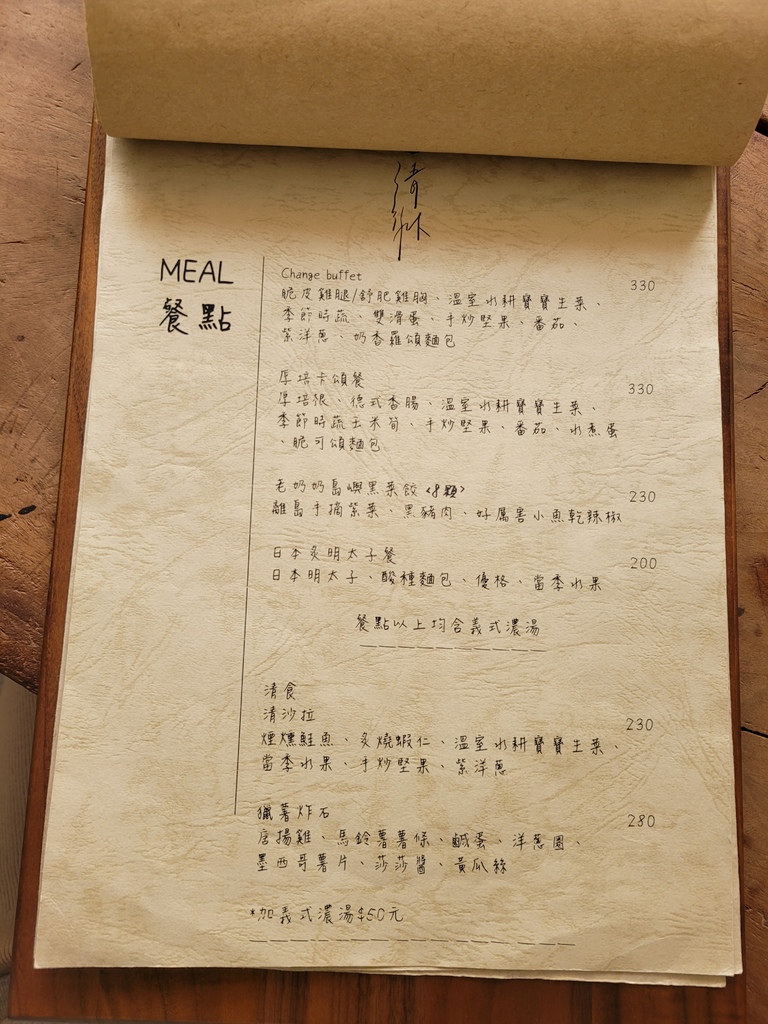 清
MEAL
餐點
Change buffet
330
脆皮雞腿/舒肥雞胸、溫室水耕寶寶生菜、
季節時蔬、雙滑蛋、手炒堅果、番茄、
紫洋蔥、奶香羅頌麵包
厚培卡頌餐
330
厚培根、德式香腸、溫室水耕寶寶生菜、
季節時蔬玉米筍、手炒堅果、番茄、水煮蛋
、脆可頌麵包
老奶奶島嶼黑菜餃<8顆>
230
離島手摘紫菜、黑豬肉、好厲害小魚乾辣椒
日本炙明太子餐
200
日本明太子、酸種麵包、優格、當季水果
餐點以上均含義式濃湯
清食
清沙拉
230
煙燻鮭魚、炙燒蝦仁、溫室水耕寶寶生菜、
當季水果、手炒堅果、紫洋蔥
獵薯炸石
280
唐揚雞、馬鈴薯薯條、鹹蛋、洋蔥圈、
墨西哥薯片、莎莎醬、黃瓜絲
*加義式濃湯$50元